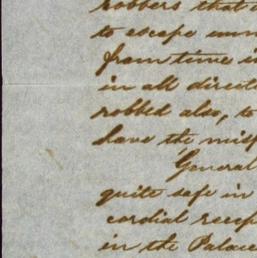 robbers that
to escape
from time
in all
robbed also, to
have the
General
quite safe in
cordial
in the Palace